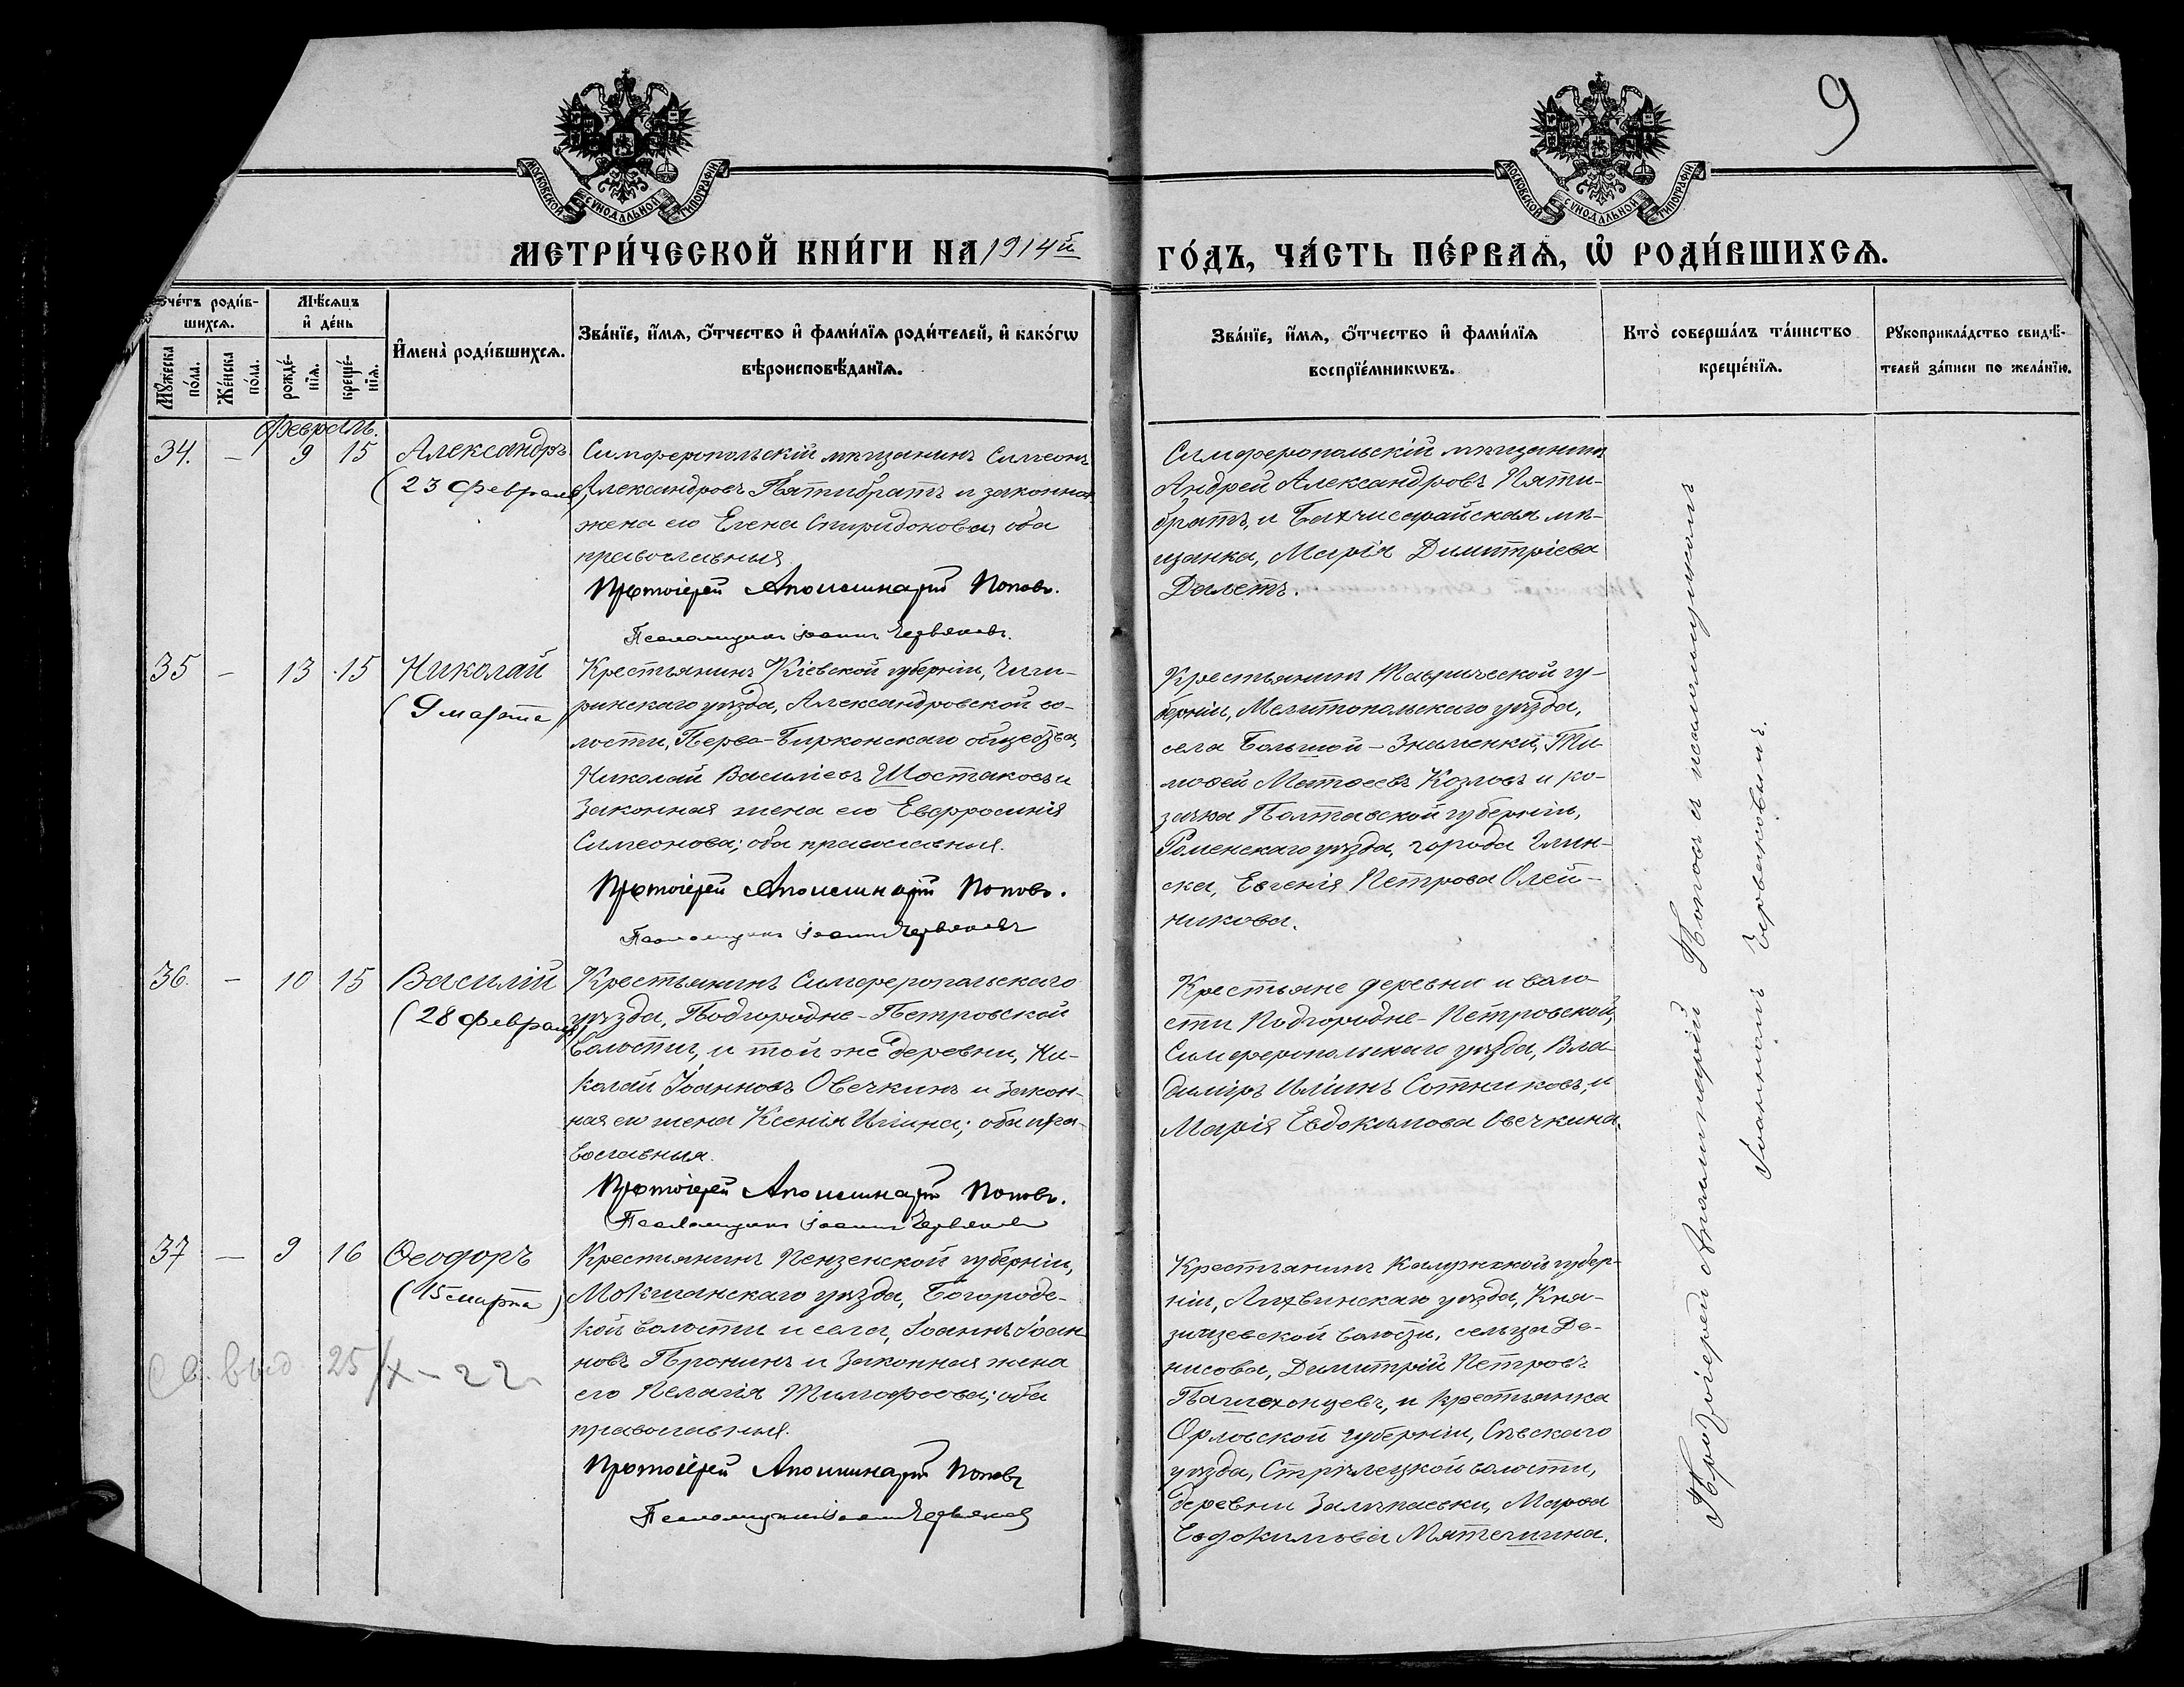 9
МОСКОВСКОЙ СѴНОДАЛЬНОЙ ТИПОГРАФІИ
МОСКОВСКОЙ СѴНОДАЛЬНОЙ ТИПОГРАФІИ
МЕТРИ́ЧЕСКОЙ КНИ́ГИ НА 1914й
ГО́ДЪ, ЧА́СТЬ ПЕ́РВАѦ, Ѡ҆ РОДИ́ВШИХСѦ.
Счéтъ роди́в-
шихсѧ.
Мꙋ́жеска по́ла.
Же́нска по́ла.
Мѣ́сѧцъ
и҆ де́нь
рожде́-
нїѧ.
креще́-
нїѧ.
И҆мена̀ роди́вшихсѧ.
Зва́нїе, и҆́мѧ, ѻ҆́тчество и҆ фами́лїѧ роди́телей, и҆ како́гѡ
вѣроисповѣ́данїѧ.
Зва́нїе, и҆́мѧ, ѻ҆́тчество и҆ фами́лїѧ
воспрїе́мникѡвъ.
Кто̀ соверша́лъ та́инство
креще́нїѧ.
Рꙋкоприкла́дство свидѣ́-
телей за́писи по жела́нїю.
Февраль.
34. – 9 15 Александръ
(23 Февраля)
Симферопольскій мѣщанинъ Симеонъ
Александровъ Пятибратъ и законная
жена его Елена Спиридоновая оба
православныя
Протоіерей Аполлинарій Поповъ.
Псаломщикъ Іоаннъ Червяковъ.
Симферопольскій мѣщанинъ
Андрей Александровъ Пяти-
братъ, и Бахчисарайская мѣ-
щанка, Марія Димитріева
Далетъ.
35 – 13 15 Николай
(9 марта)
Крестьянинъ Кіевской губерніи, Чиги-
ринскаго уѣзда, Александровской во-
лости, общества,
Николай Василіевъ Шостаковъ и
законная жена его Евфросинія
Симеонова; оба православныя.
Протоіерей Аполлинарій Поповъ.
Псаломщикъ Іоаннъ Червяковъ
Крестьянинъ Таврической гу-
берніи, Мелитопольскаго уѣзда,
села Большой-Знаменки, Ти-
моѳей Матѳеевъ Козловъ и ко-
зачка Полтавской губерніи,
Роменскаго уѣзда, города Глин-
ска, Евгенія Петрова Олей-
никова.
36. – 10 15 Василій
(28 Февраля)
Крестьянинъ Симферопольскаго
уѣзда, Подгородне-Петровской
волости, и той же деревни, Ни-
колай Іоанновъ Овечкинъ и закон-
ная его жена Ксенія Иліина; оба пра-
вославныя.
Протоіерей Аполлинарій Поповъ.
Псаломщикъ Іоаннъ Червяковъ
Крестьяне деревни и воло-
сти Подгородне-Петровской,
Симферопольскаго уѣзда, Вла-
диміръ Иліинъ Сотниковъ, и
Марія Евдокимова Овечкина.
37 – 9 16 Ѳеодоръ
(15 марта)
Св. выд 25/X – 22
Крестьянинъ Пензенской губерніи,
Мокшанскаго уѣзда, Богородс-
кой волости и села, Іоаннъ Іоан-
новъ Пронинъ и законная жена
его Пелагія Тимофеева; оба
православныя.
Протоіерей Аполлинарій Поповъ
Псаломщикъ Іоаннъ Червяковъ
Крестьянинъ Калужской губер-
ніи, Лихвинскаго уѣзда, Кня-
зищевской волости, сельца Де-
нисова, Димитрій Петровъ
Пашехонцевъ, и крестьянка
Орловской губерніи, Сѣвскаго
уѣзда, Стрѣлецкой волости,
деревни Марѳа
Евдокимова Мятешина.
Протоіерей Аполлинарій Поповъ съ псаломщикомъ
Іоанномъ Червяковымъ.